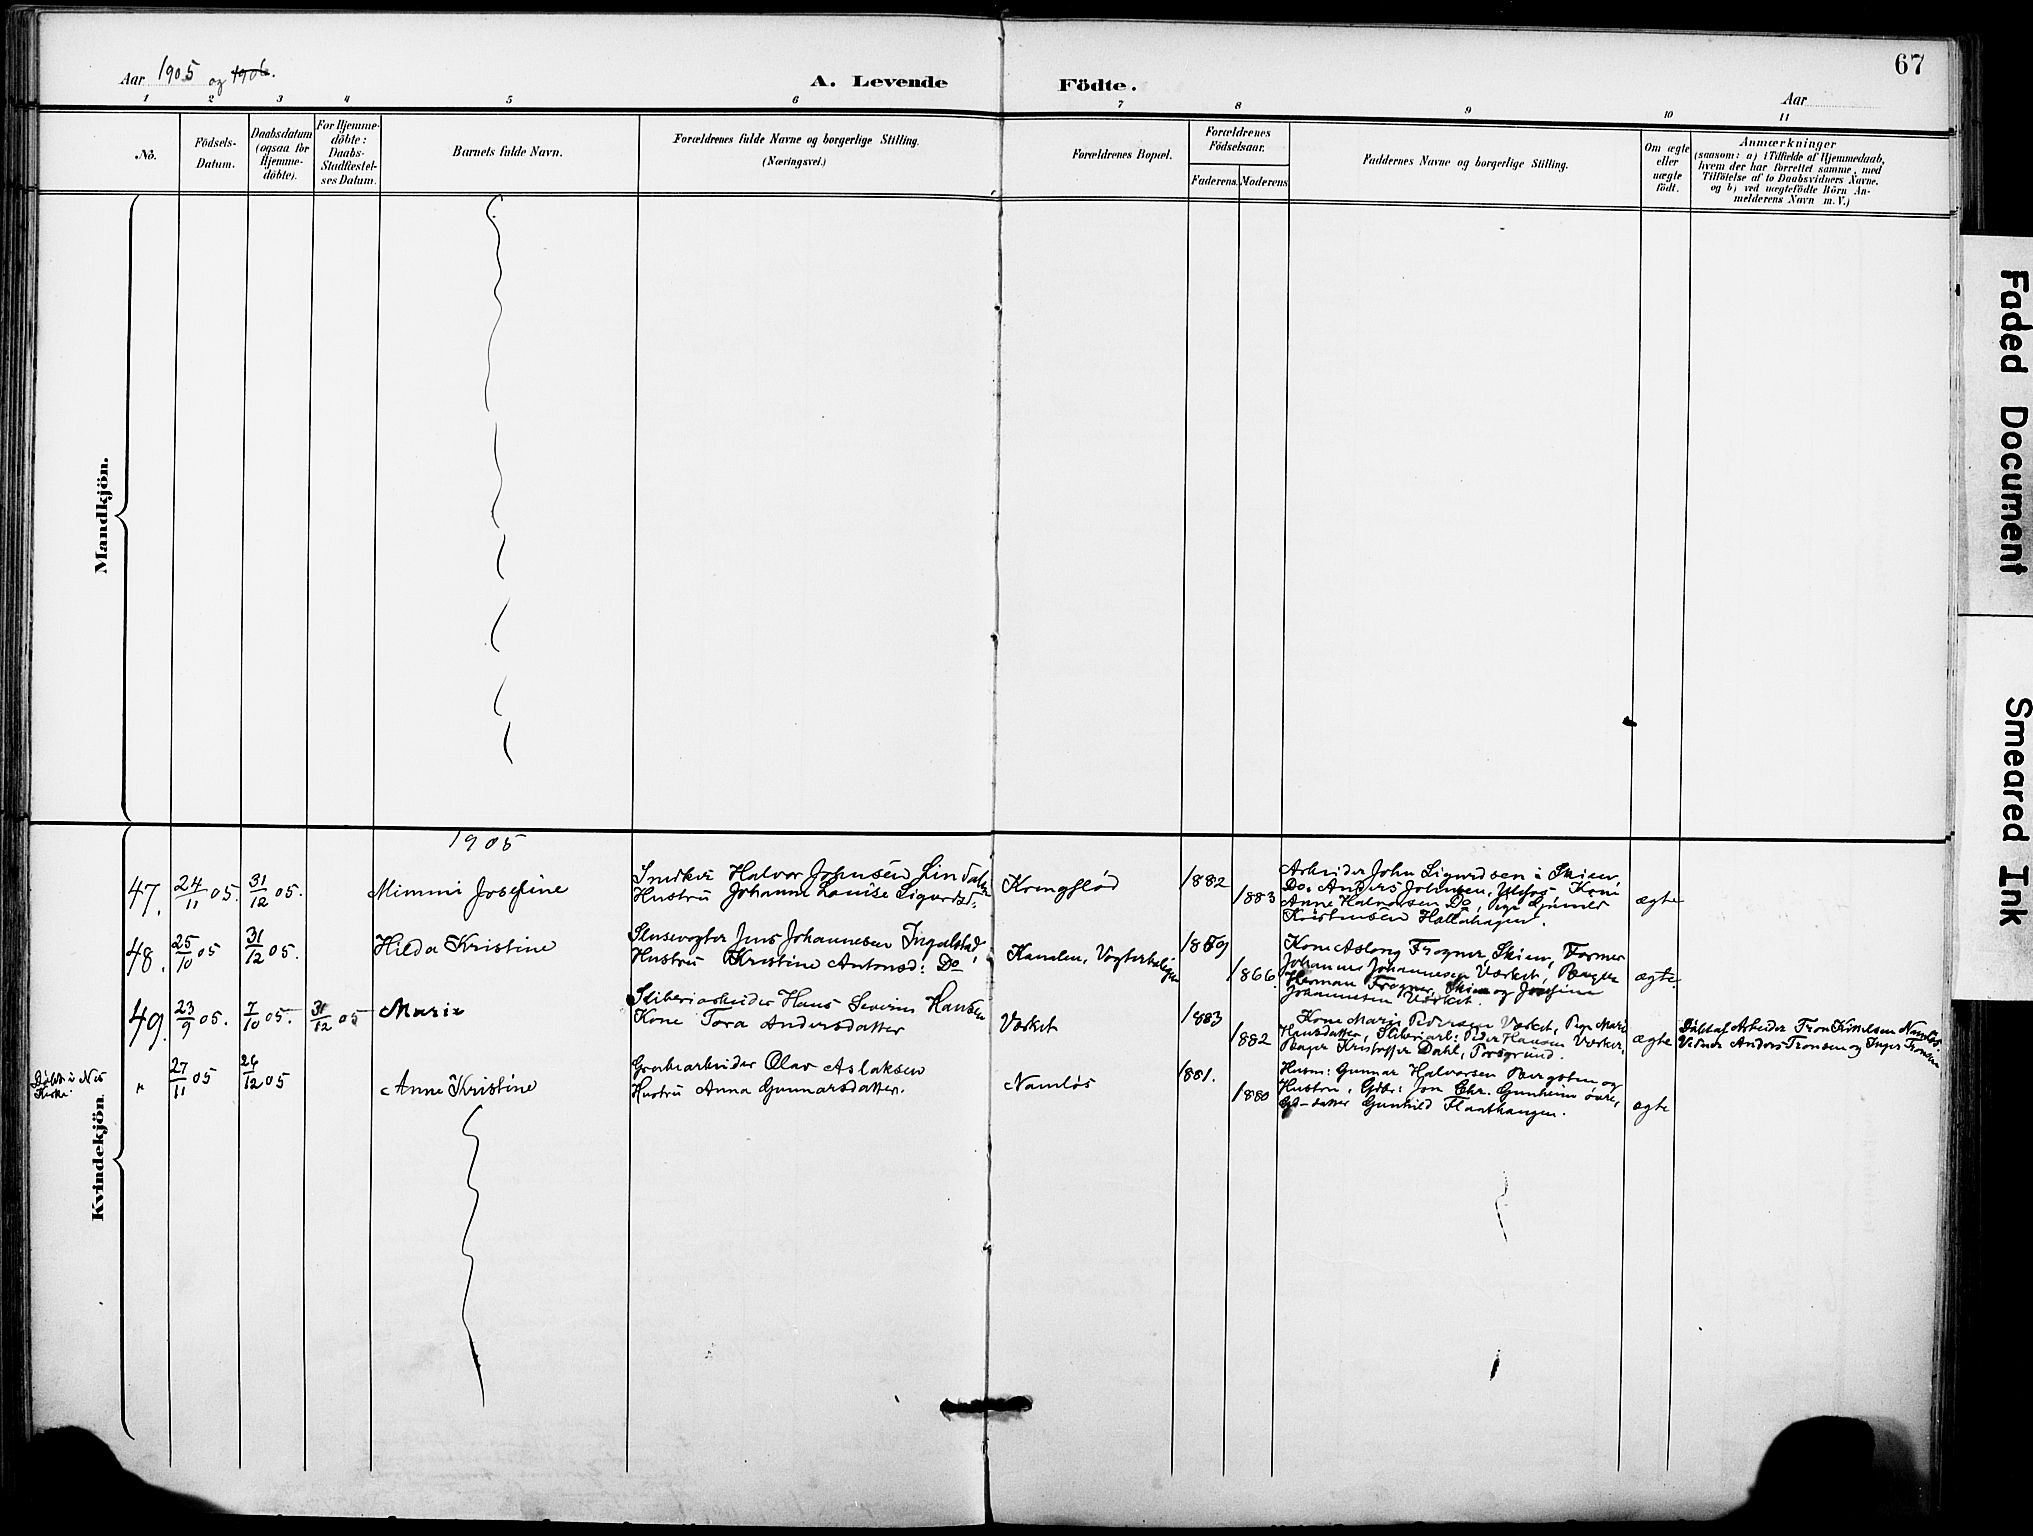 Aar 1905 og 1906.
A. Levende Födte.
Aar
67
1 2 3 4 5 6 7 8 9 10 11
No.
Födsels-
Datum.
Daabsdatum
(ogsaa for
Hjemme-
döbte).
For Hjemme-
döbte:
Daabs-
Stadfæstel-
ses Datum.
Barnets fulde Navn.
Forældrenes fulde Navne og borgerlige Stilling.
(Næringsvei.)
Forældrenes Bopæl.
Forældrenes
Födselsaar.
Faderens. Moderens.
Faddernes Navne og borgerlige Stilling.
Om ægte
eller
uægte
födt.
Anmærkninger
(saasom: a) i Tilfælde af Hjemmedaab,
hvem der har forrettet samme, med
Tilföielse af to Daabsvidners Navne.
og b) ved uægtefödte Börn An-
melderens Navn m. V.)
Mandkjön.
Kvindekjön.
1905
47. 24/11 05. 31/12 05. Mimmi Josefine
Snedker Halvor Johnsen Lindalen
Hustru Johanne Louise Sigurdsd:
Kringflöd
1882
1883
Arbeider John Sigurdsen i Skien,
Do. Anders Johnsen, Ulefos, Kone
Anne Halvorsen Do, Pige
Kristensen Hallahagen.
ægte
48. 25/10 05 31/12 05. Hilda Kristine
Slusevogter Jens Johannesen Ingolstad,
Hustru Kristine Antonsd: Do
Kanalen, Vogterboligen
1869
1866.
Kone Aslaug Frogner, Skien, Former
Johannes Johannesen Værket, Bager
Herman Frogner, Skien og Josefine
Johannesen Værket.
ægte.
49. 23/9 05. 7/10 05. 31/12 05 Marie
Sliberiarbeider Hans Severin Hansen
Kone Tora Andersdatter
Værket
1883
1882
Kone Marie Pedersen Værket, Pige Marie
Hansdatter, Sliberiarb: Peder Hansen Værket,
Bager Kristoffer Dahl, Porsgrund.
ægte
Döbt af Arbeider Tron Kittelsen Namlös.
Vidner Anders Tronsen og Inger Tronsen
Döbt i Nes
Kirke.
" 27/11 05 26/12 05 Anne Kristine
Grubearbeider Olav Aslaksen
Hustru Anna Gunnarsdatter.
Namlös
1881.
1880
Husm: Gunnar Halvorsen Bergstien og
Hustru, Gdbr: Jon Chr. Gunheim övre,
Gd-datter Gunhild Flaathaugen.
ægte
Faded Document
Smeared Ink